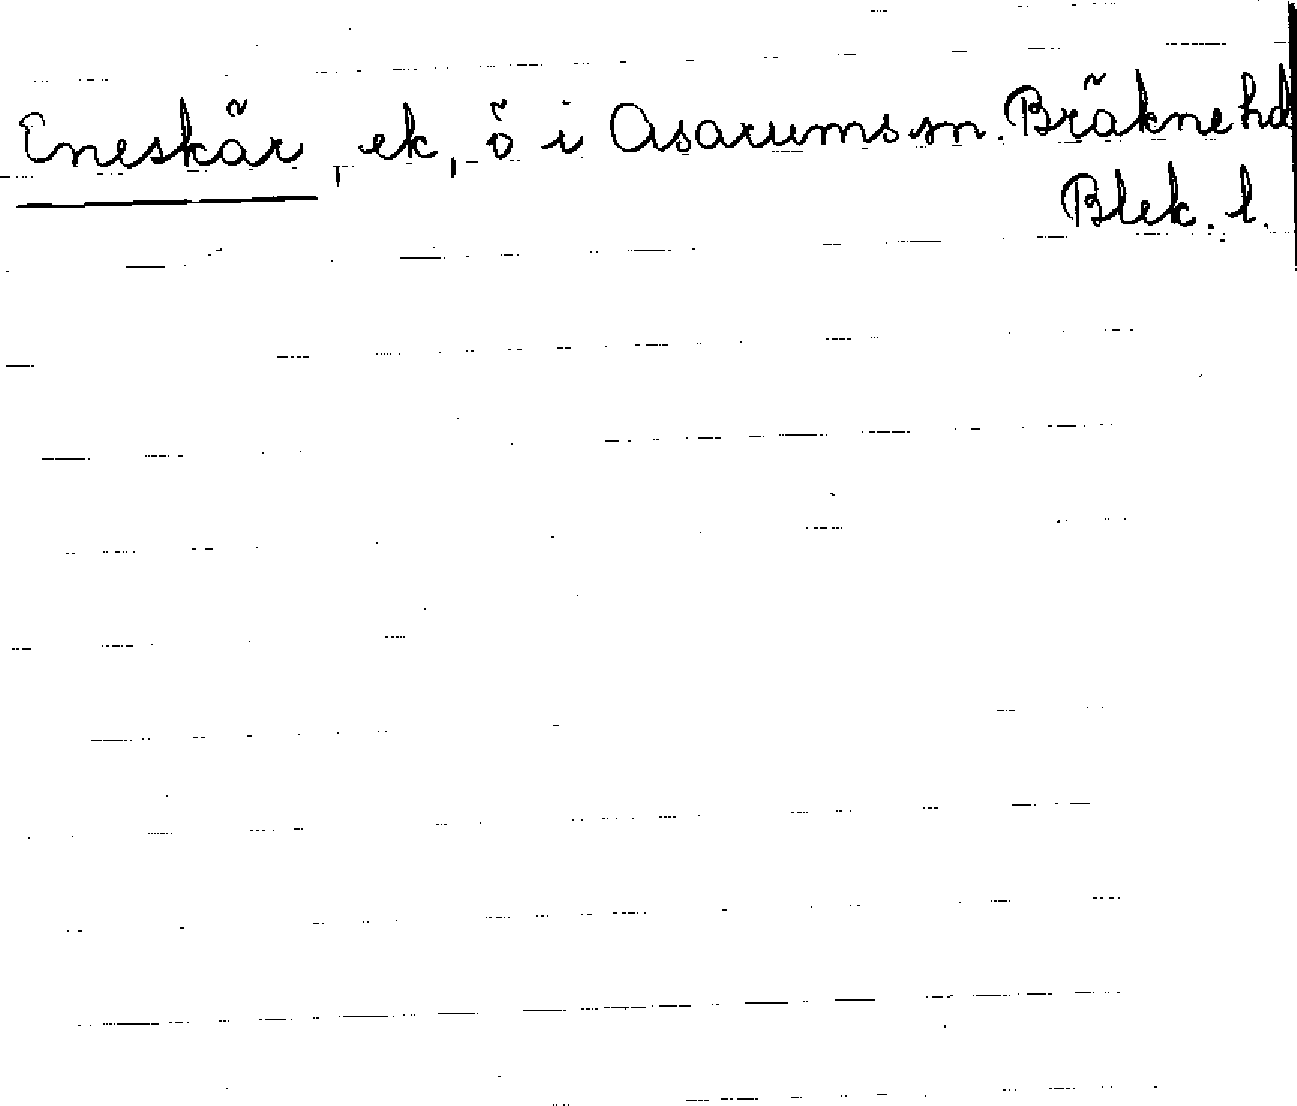 Eneskär, ek, ö i Asarums sn. Bräkne hd
Blek. l.